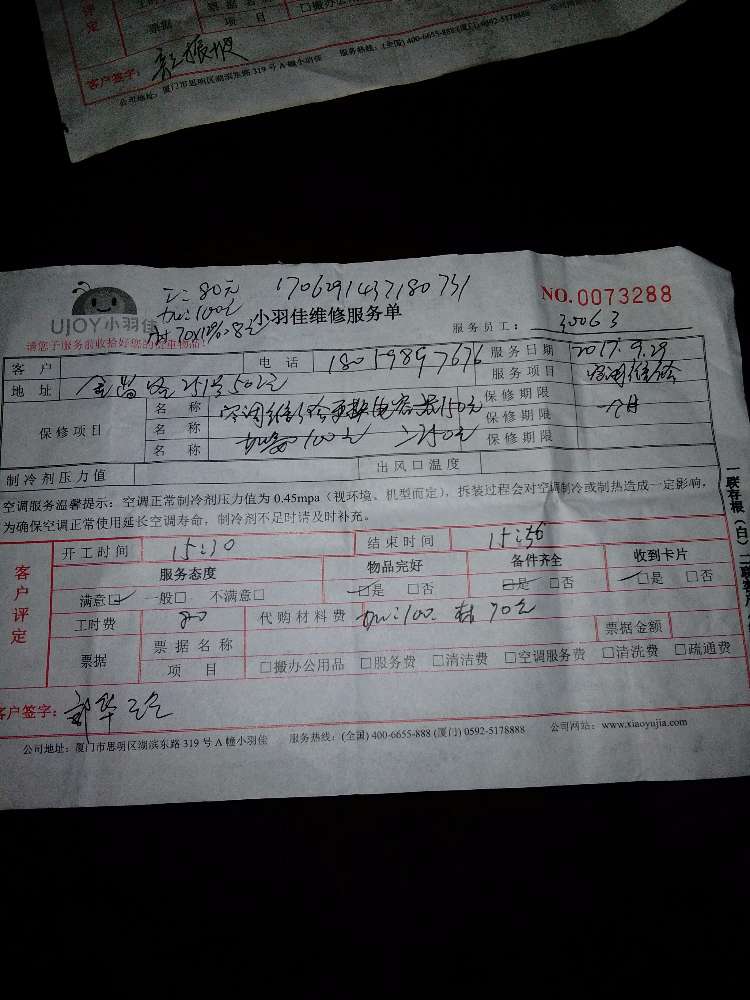 客户签字:
公司地址：厦门市思明区湖滨东路 319 号 A 幢小羽佳 服务热线：(全国) 400-6655-888 (厦门) 0592-5178888
工：80元
加：100元
UJOY小羽佳
小羽佳维修服务单
NO.0073288
请您于服务前收拾好您的贵重物品！
服务员工： 30063
客户 电话 18059897676 服务日期 2017.9.29
地址 251号502 服务项目 空调维修
保修项目
名称 空调维修更换电容器150元 保修期限
名称 加氨100元 =250元 保修期限 一个月
名称 保修期限
制冷剂压力值 出风口温度
空调服务温馨提示：空调正常制冷剂压力值为 0.45mpa（视环境、机型而定），拆装过程会对空调制冷或制热造成一定影响，
为确保空调正常使用延长空调寿命，制冷剂不足时请及时补充。
客户评定
开工时间 15:10 结束时间 15:56
服务态度 物品完好 备件齐全 收到卡片
满意□ 一般□ 不满意□ □是 □否 □是 □否 □是 □否
工时费 80 代购材料费 加：100 70元
票据 票据名称 票据金额
项目 □搬办公用品 □服务费 □清洁费 □空调服务费 □清洗费 □疏通费
客户签字:
公司地址：厦门市思明区湖滨东路 319 号 A 幢小羽佳 服务热线：(全国) 400-6655-888 (厦门) 0592-5178888 公司网站：www.xiaoyujia.com
一联存根（白）